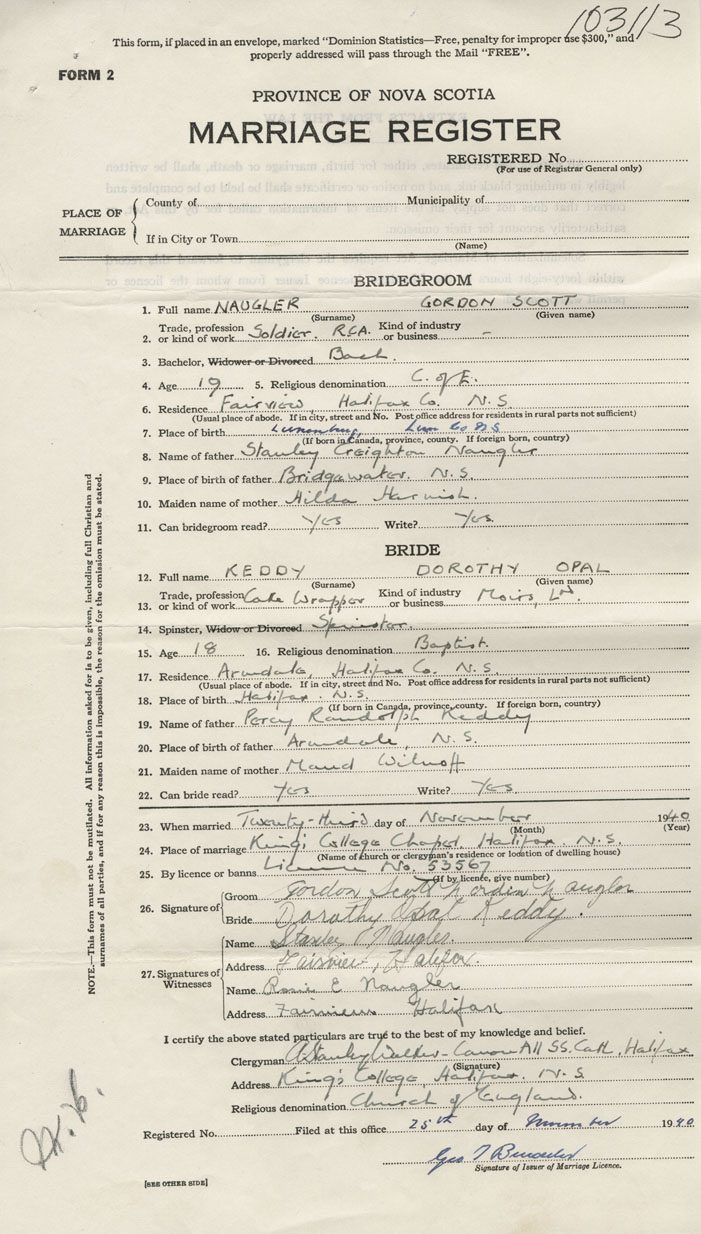 103113
This form, if placed in an envelope, marked "Dominion Statistics—Free, penalty for improper use $300," and
properly addressed will pass through the Mail "FREE".
FORM 2
PROVINCE OF NOVA SCOTIA
MARRIAGE REGISTER
REGISTERED No.
(For use of Registrar General only)
PLACE OF MARRIAGE
County of Municipality of
If in City or Town
(Name)
BRIDEGROOM
1. Full name NAUGLER GORDON SCOTT
(Surname) (Given name)
2. Trade, profession or kind of work Soldier. R.C.A. Kind of industry or business –
3. Bachelor, Widower or Divorced Bach.
4. Age 19 5. Religious denomination C. of E.
6. Residence Fairview, Halifax Co. N.S.
(Usual place of abode. If in city, street and No. Post office address for residents in rural parts not sufficient)
7. Place of birth Lunenburg, Lun Co N S
(If born in Canada, province, county. If foreign born, country)
8. Name of father Stanley Creighton Naugler
9. Place of birth of father Bridgewater. N.S.
10. Maiden name of mother Hilda Harnish.
11. Can bridegroom read? Yes Write? Yes.
BRIDE
12. Full name KEDDY DOROTHY OPAL
(Surname) (Given name)
13. Trade, profession or kind of work Cake Wrapper Kind of industry or business Moirs, Ltd.
14. Spinster, Widow or Divorced Spinster.
15. Age 18 16. Religious denomination Baptist.
17. Residence Armdale, Halifax Co. N.S.
(Usual place of abode. If in city, street and No. Post office address for residents in rural parts not sufficient)
18. Place of birth Halifax. N.S.
(If born in Canada, province, county. If foreign born, country)
19. Name of father Percy Randolph Keddy
20. Place of birth of father Armdale, N.S.
21. Maiden name of mother Maud Wilnoff
22. Can bride read? Yes Write? Yes.
23. When married Twenty-third day of November 1940
(Month) (Year)
24. Place of marriage King's College Chapel, Halifax. N.S.
(Name of church or clergyman's residence or location of dwelling house)
25. By licence or banns Licence No. 53567
(If by licence, give number)
26. Signature of
Groom Gordon Scott Naugler
Bride Dorothy Opal Keddy.
27. Signatures of Witnesses
Name Stanley C Naugler.
Address Fairview, Halifax.
Name Rosie E Naugler
Address Fairview Halifax
I certify the above stated particulars are true to the best of my knowledge and belief.
Clergyman A. Stanley Walker - Canon All SS. Cath, Halifax
(Signature)
Address King's College, Halifax. N.S.
Religious denomination Church of England.
Registered No. Filed at this office 25th day of November 1940
Geo
Signature of Issuer of Marriage Licence.
[SEE OTHER SIDE]
NOTE.—This form must not be mutilated. All information asked for is to be given, including full Christian and
surnames of all parties, and if for any reason this is impossible, the reason for the omission must be stated.